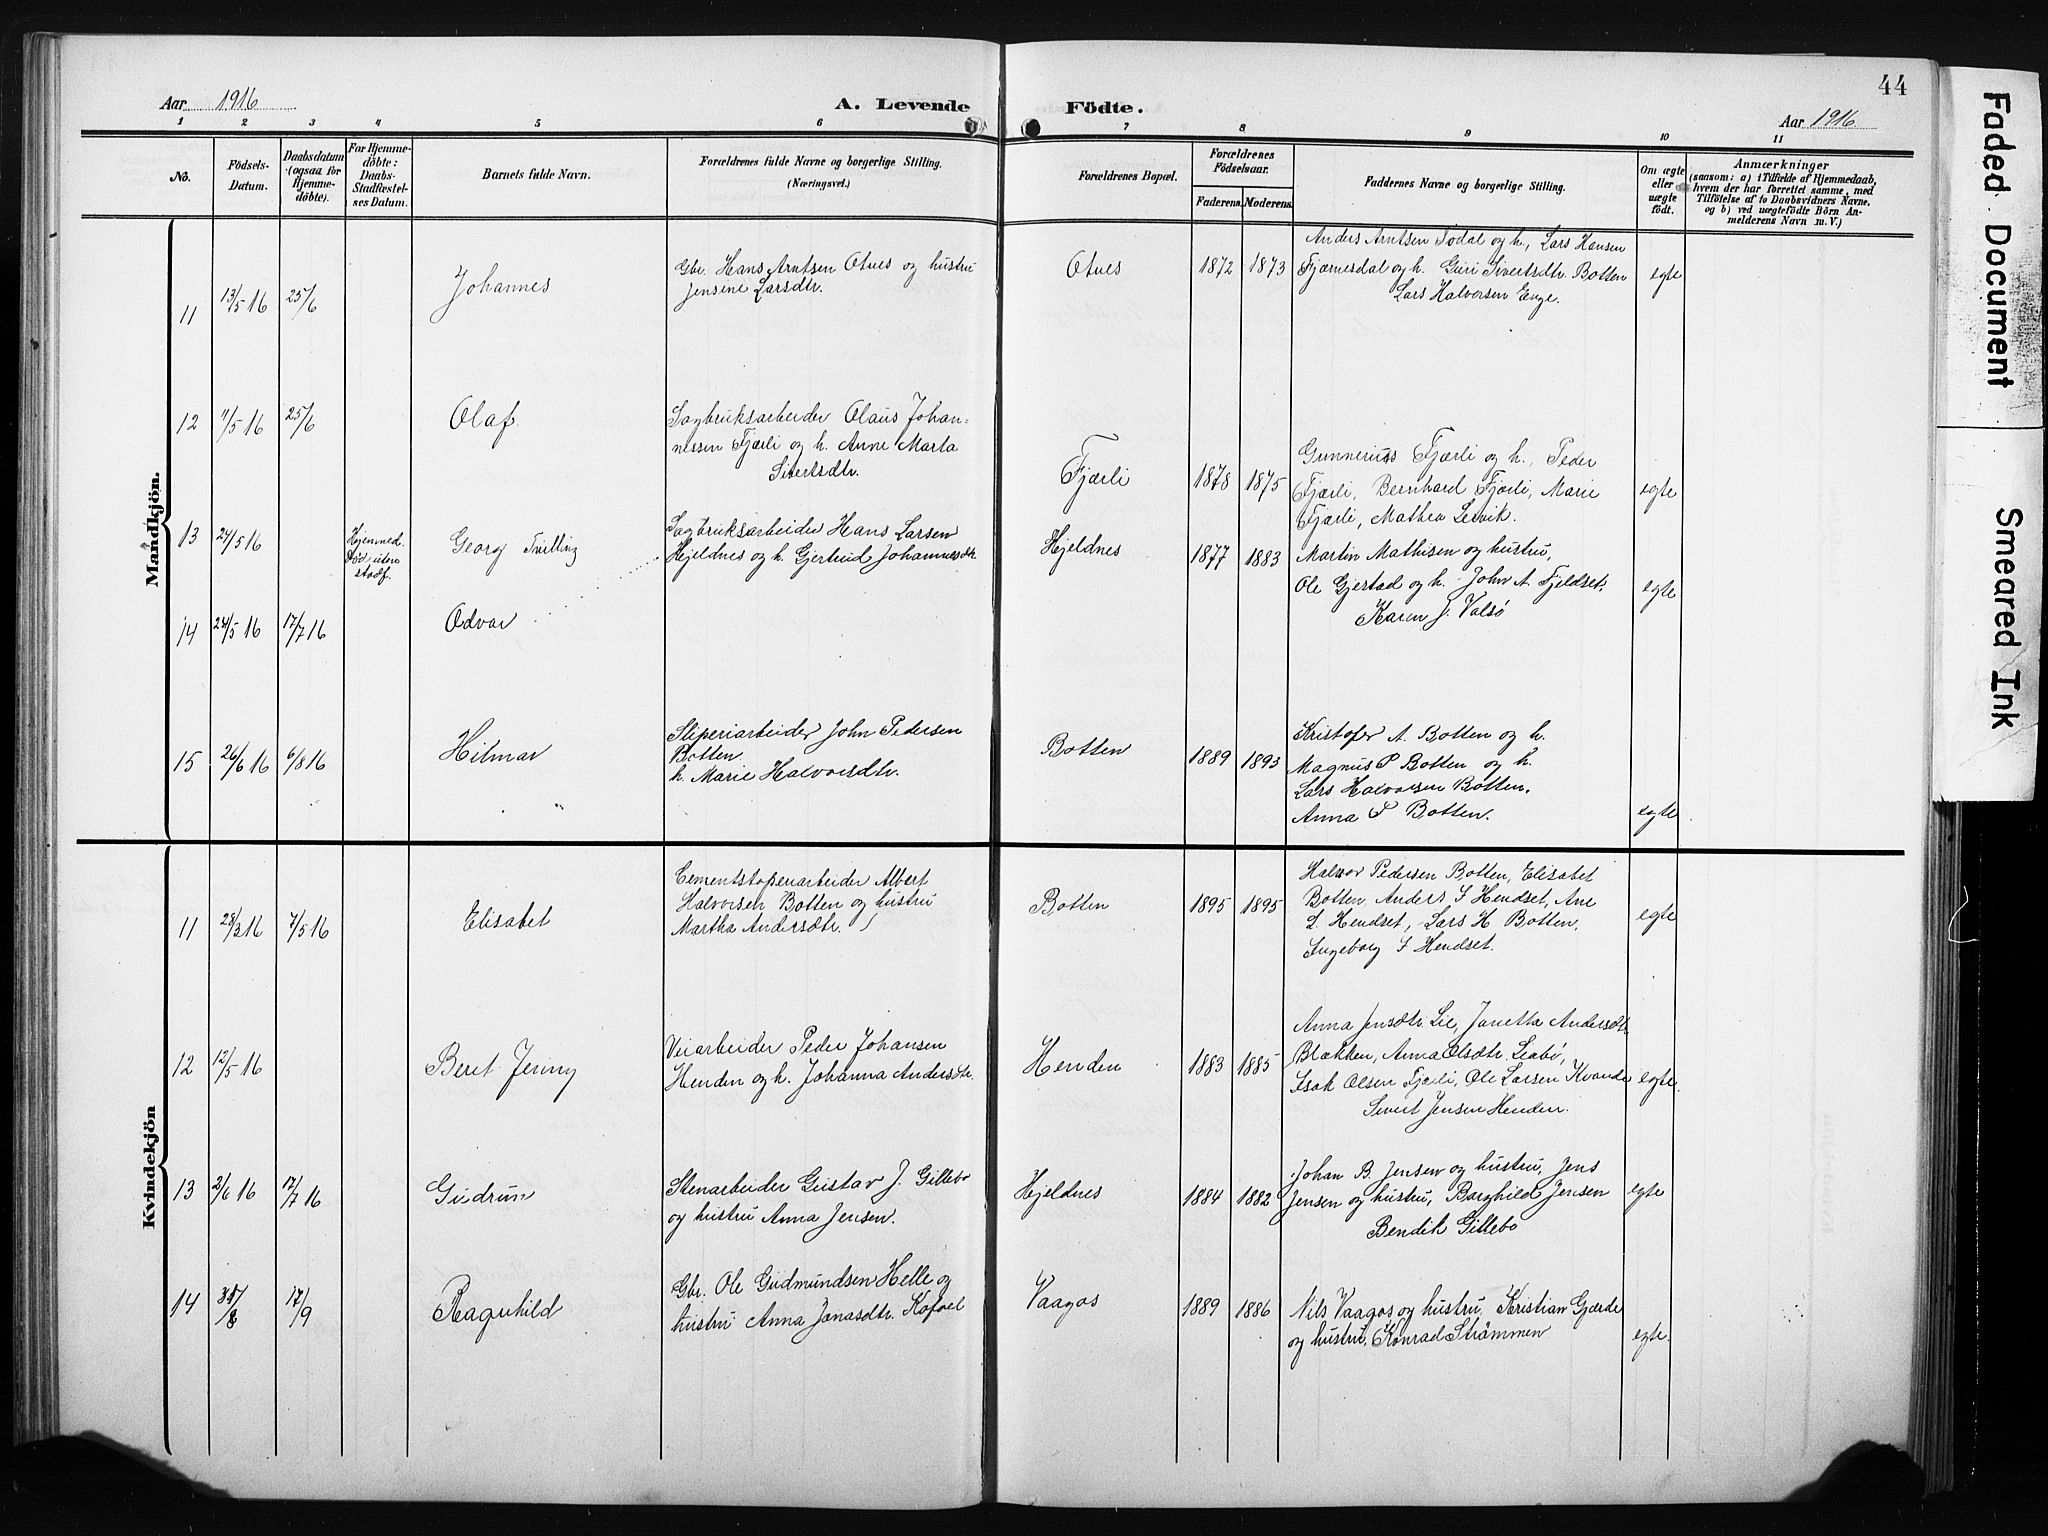 44
Aar 1916
A. Levende Födte.
Aar 1916
1 2 3 4 5 6 7 8 9 10 11
No.
Födsels-
Datum.
Daabsdatum
(ogsaa for
Hjemme-
döbte).
For Hjemme-
döbte:
Daabs-
Stadfæstel-
ses Datum.
Barnets fulde Navn.
Forældrenes fulde Navne og borgerlige Stilling.
(Næringsvei.)
Forældrenes Bopæl.
Forældrenes
Födselsaar.
Faderens. Moderens.
Faddernes Navne og borgerlige Stilling.
Om ægte
eller
uægte
födt.
Anmærkninger
(saasom: a) i Tilfælde af Hjemmedaab,
hvem der har forrettet samme, med
Tilföielse af to Daabsvidners Navne,
og b) ved uægtefödte Börn An-
melderens Navn m. V.)
Mandkjön.
11 13/5 16 25/6 Johannes
Gbr. Hans Arntsen Otnes og hustru
Jensine Larsdtr.
Otnes 1872 1873
Anders Arntsen Södal og h., Lars Hansen
Fjærnesdal og h. Guri Sivertsdtr. Botten
Lars Halvorsen Enge.
egte
12 11/5 16 25/6 Olaf
Sagbruksarbeider Olaus Johan-
nessen Fjærli og h. Anne Marta
Sivertsdtr.
Fjærli 1878 1875
Gunnerius Fjærli og h., Peder
Fjærli, Bernhard Fjærli, Marie
Fjærli, Mathea Lervik.
egte
13 24/5 16
Hjemmed.
död uten
stadf.
Georg Tvilling
Sagbruksarbeider Hans Larsen
Hjeldnes og h. Gjertrud Johannesdtr
Hjeldnes 1877 1883
Martin Mathisen og hustru,
Ole Gjerstad og h. John A Fjeldset,
Karen J. Valsö
egte
14 24/5 16 17/7 16 Odvar
15 26/6 16 6/8 16 Hilmar
Sliperiarbeider John Pedersen
Botten
h. Marie Halvorsdtr.
Botten 1889 1893
Kristofer A. Botten og h.
Magnus P Botten og h.
Lars Halvorsen Botten,
Anna P Botten.
egte
Kvindekjön
11 28/3 16 7/5 16 Elisabet
Cementstøperiarbeider Albert
Halvorsen Botten og hustru
Martha Andersdtr.
Botten 1895 1895
Halvor Pedersen Botten, Elisabet
Botten, Anders I Hendset, Ane
L. Hendset, Lars H Botten,
Ingeborg I Hendset.
egte
12 12/5 16 Beret Jenny
Veiarbeider Peder Johansen
Henden og h. Johanna Andersdtr.
Henden 1883 1885
Anna Jensdtr. Lie, Janetta Andersdtr
Blakken, Anna Olsdtr. Leabö,
Isak Olsen Fjærli, Ole Larsen Kvande
Sivert Jensen Henden.
egte
13 2/6 16 17/7 16 Gudrun
Stenarbeider Gustav J. Gillebo
og hustru Anna Jensen.
Hjeldnes 1884 1882
Johan B. Jensen og hustru, Jens
Jensen og hustru, Borghild Jensen
Bendik Gillebo
egte
14 31/8 17/9 Ragnhild
Gbr. Ole Gudmundsen Helle og
hustru Anna Jonasdtr. Kofoel
Vaagos 1889 1886
Nils Vaagos og hustru, Kristian Gjærde
og hustru, Konrad Strömmen
egte.
Faded Document
Smeared Ink